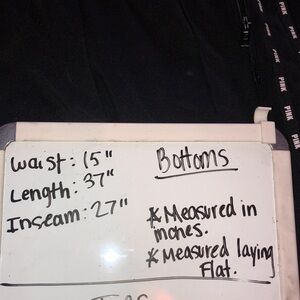 Waist: 15"
Length: 37"
Inseam: 27"
Bottoms
* Measured in
inches.
* Measured laying
Flat.
PINK
PINK
PINK
PINK
PINK